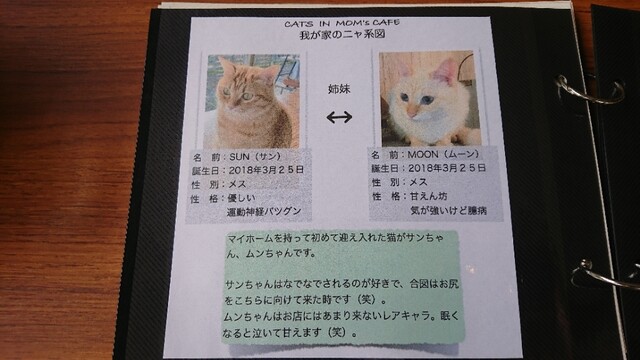 CATS IN MOM's CAFE
我が家のニャ系図
姉妹
名　前：SUN（サン）
誕生日：2018年3月25日
性　別：メス
性　格：優しい
運動神経バツグン
名　前：MOON（ムーン）
誕生日：2018年3月25日
性　別：メス
性　格：甘えん坊
気が強いけど臆病
マイホームを持って初めて迎え入れた猫がサンちゃ
ん、ムンちゃんです。
サンちゃんはなでなでされるのが好きで、合図はお尻
をこちらに向けて来た時です（笑）。
ムンちゃんはお店にはあまり来ないレアキャラ。眠く
なると泣いて甘えます（笑）。